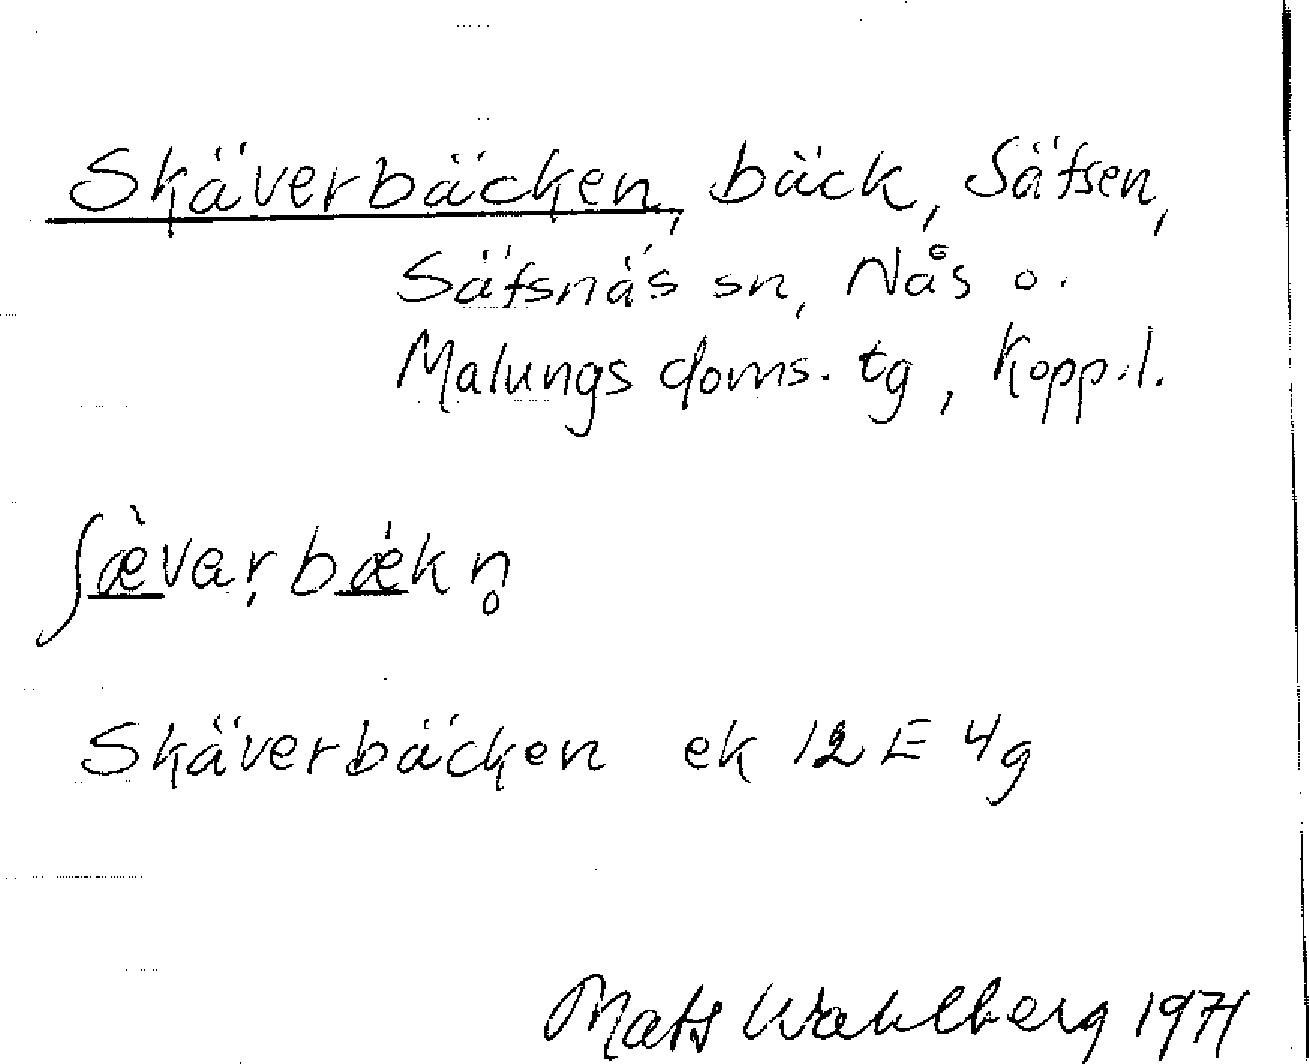 Skäverbäcken, bäck, Säfsen,
Säfsnäs sn, Nås o.
Malungs doms. tg, Kopp.l.
ʃæ̀var̩bǽkn̥
Skäverbäcken ek 12E 4g
Mats Wahlberg 1971